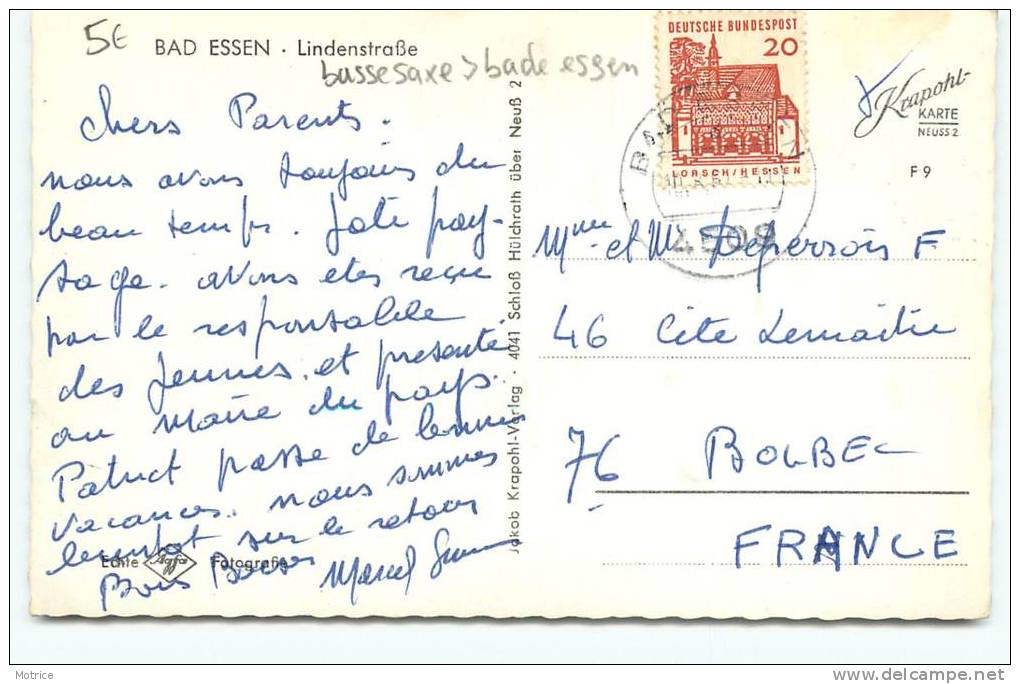 5€
BAD ESSEN · Lindenstraße
bassesaxe > bade essen
DEUTSCHE BUNDESPOST
20
LORSCH/HESSEN
4509
Krapohl-
KARTE
NEUSS 2
F 9
Chers Parents.
nous avons toujours du
beau temps. Joli pay-
sage. avons etes reçu
par le responsable
des Jeunes. et presenté
au Maire du pays.
Patrick passe de bonnes
vacances. nous sommes
bientot sur le retour
Bons Baisers Marcel
Echte Agfa Fotografie
Jakob Krapohl-Verlag · 4041 Schloß Hülchrath über Neuß 2
Mme et M F
46 Cite Lemaitre
76 BOLBEC
FRANCE
Motrice
delcampe.net